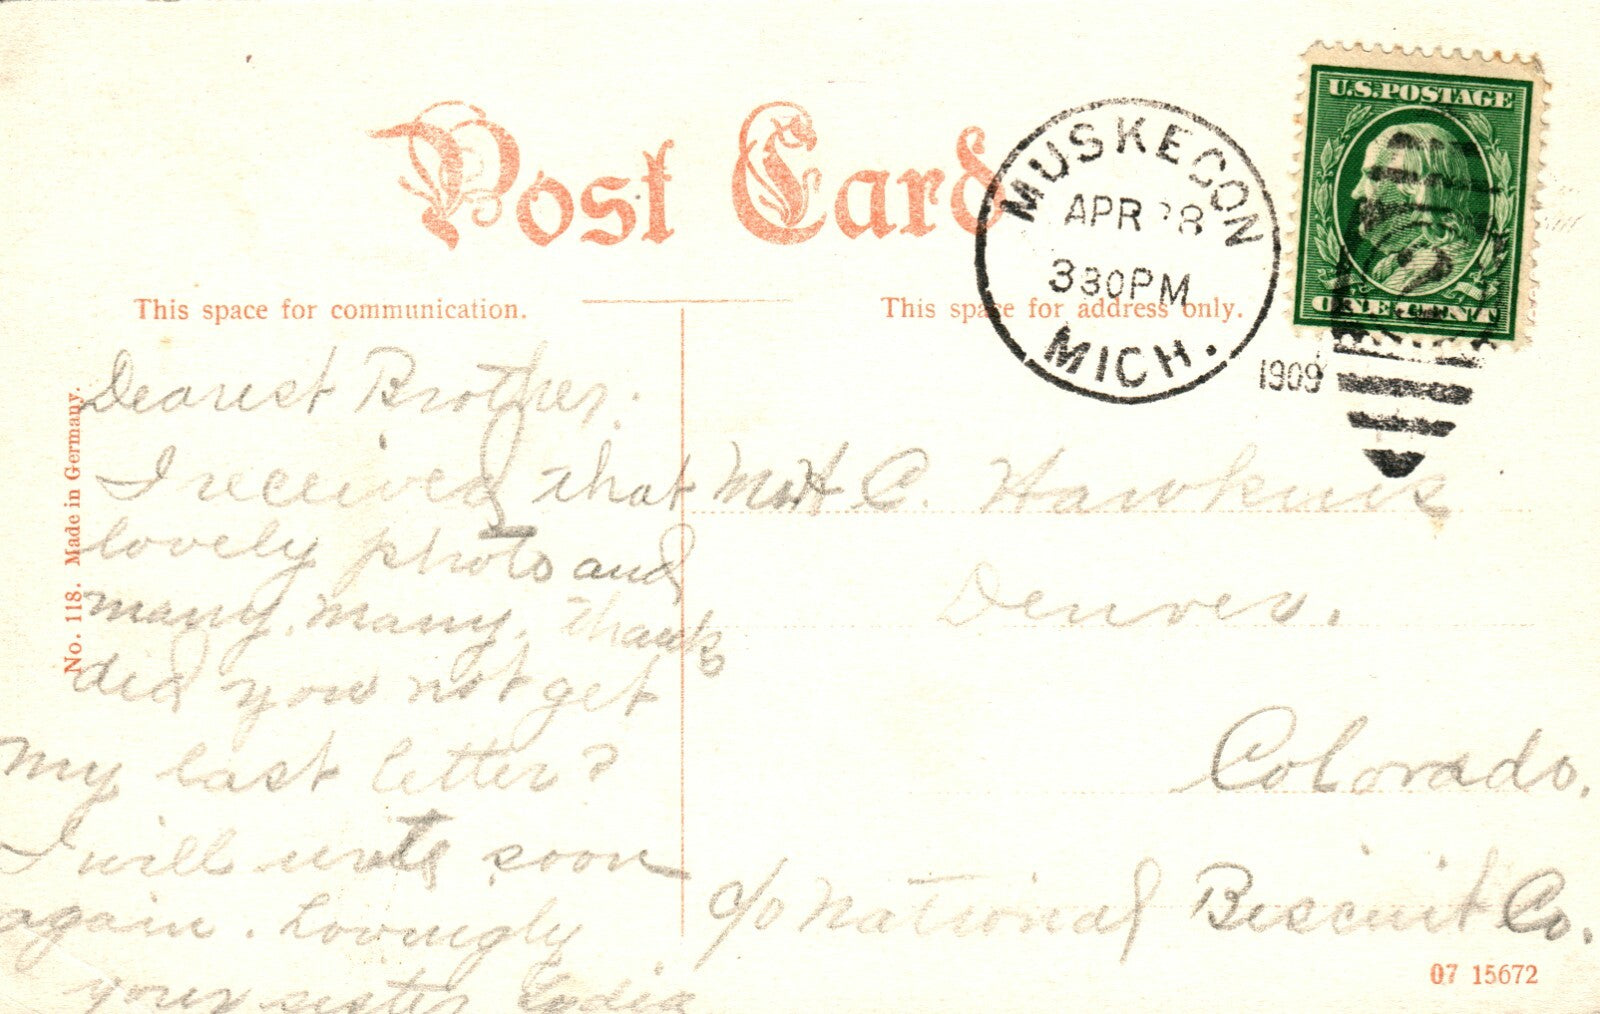 Post Card
MUSKEGON
APR 28
330PM
MICH.
1909
U.S. POSTAGE
ONE CENT
This space for communication.
This space for address only.
No. 118. Made in Germany.
Dearest Brother.
I received that
lovely photo and
many, many, thanks
did you not get
my last letter?
I will write soon
again. Lovingly
your sister Lydia
Mr. H. C. Hawkins
Denver.
Colorado.
c/o National Biscuit Co.
07 15672